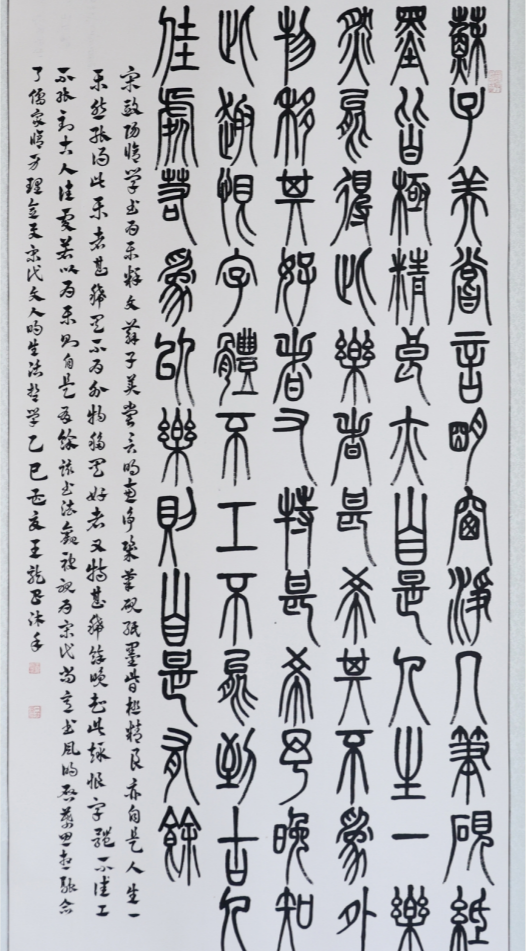 蘇子美嘗言明窗淨几筆硯紙
墨皆極精良亦自是人生一樂
然能得此樂者甚希其不為外
物移其好者又特甚希予晚知
此趣恨字體不工不能到古人
佳處若為以樂則自是有餘
宋歐陽脩學書為樂釋文蘇子美嘗言明窗净几筆硯紙墨皆極精良亦自是人生一
樂然能得此樂者甚稀其不為外物移其好者又特甚稀余晚知此趣恨字體不佳工
不能到古人佳處若以為樂則自是有餘該書法觀被視為宋代尚意書風的啟蒙思想融合
了儒家脩身理念及宋代文人的生活哲學乙巳孟夏王龍沐手